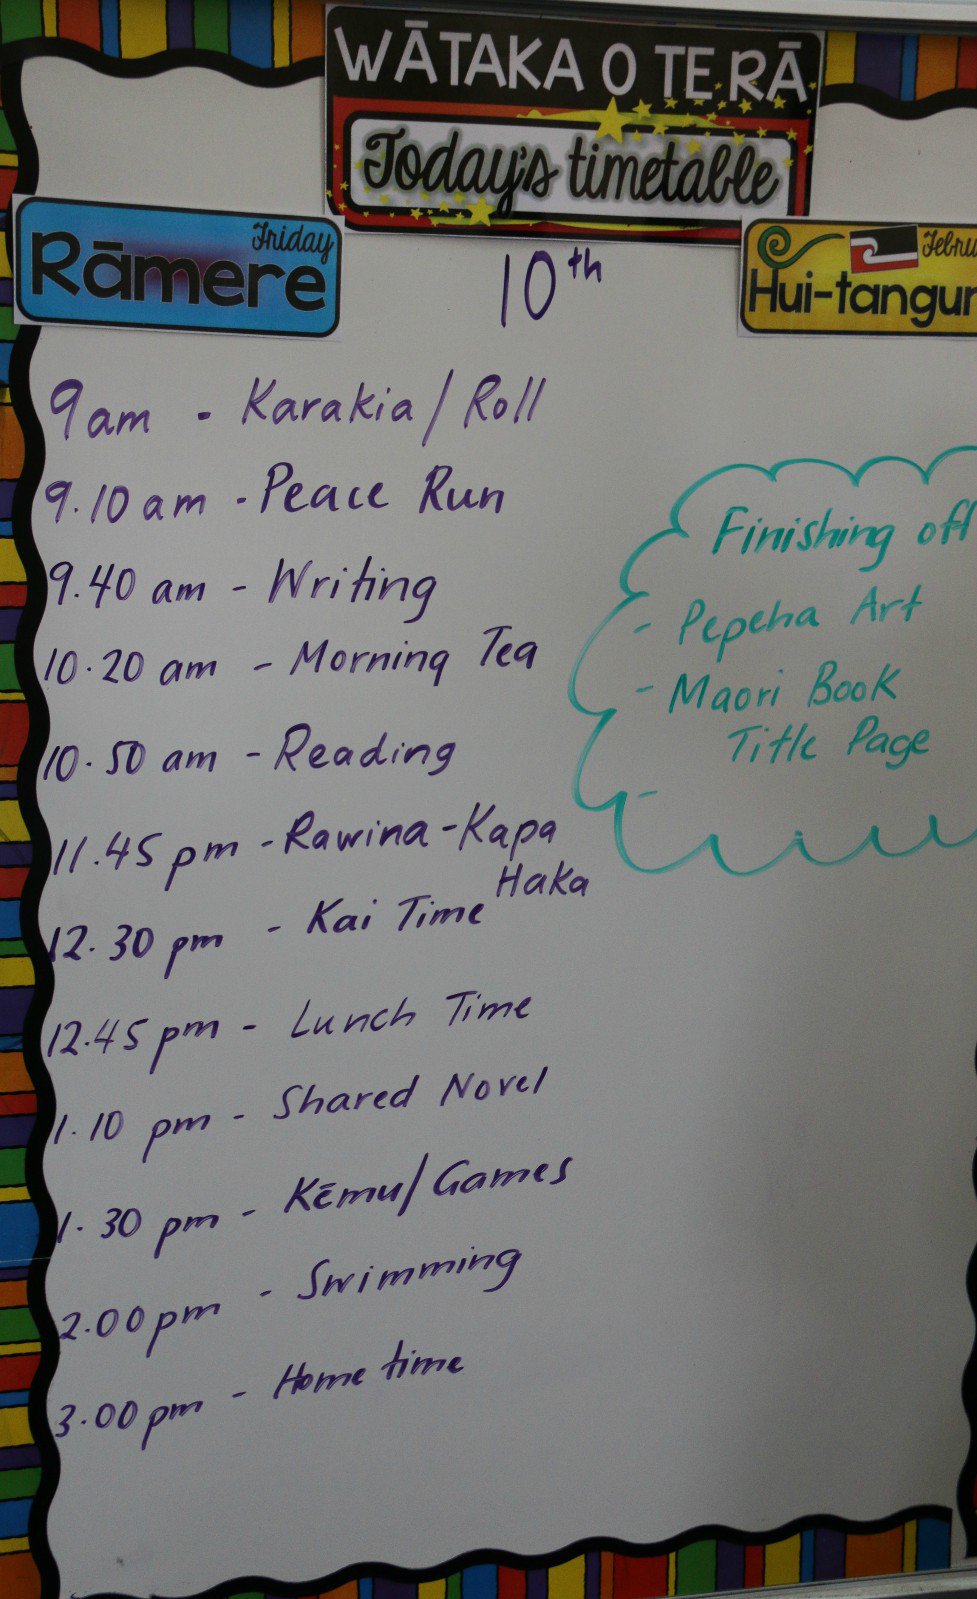 WĀTAKA O TE RĀ
Today's timetable
Friday
Rāmere
10th
Hui-tangur
9am - Karakia / Roll
9.10 am - Peace Run
9.40 am - Writing
10.20 am - Morning Tea
10.50 am - Reading
11.45 pm - Rawina - Kapa
Haka
12.30 pm - Kai Time
12.45 pm - Lunch Time
1.10 pm - Shared Novel
1.30 pm - Kēmu/Games
2.00 pm - Swimming
3.00 pm - Home time
Finishing off
- Pepeha Art
- Maori Book
Title Page
-